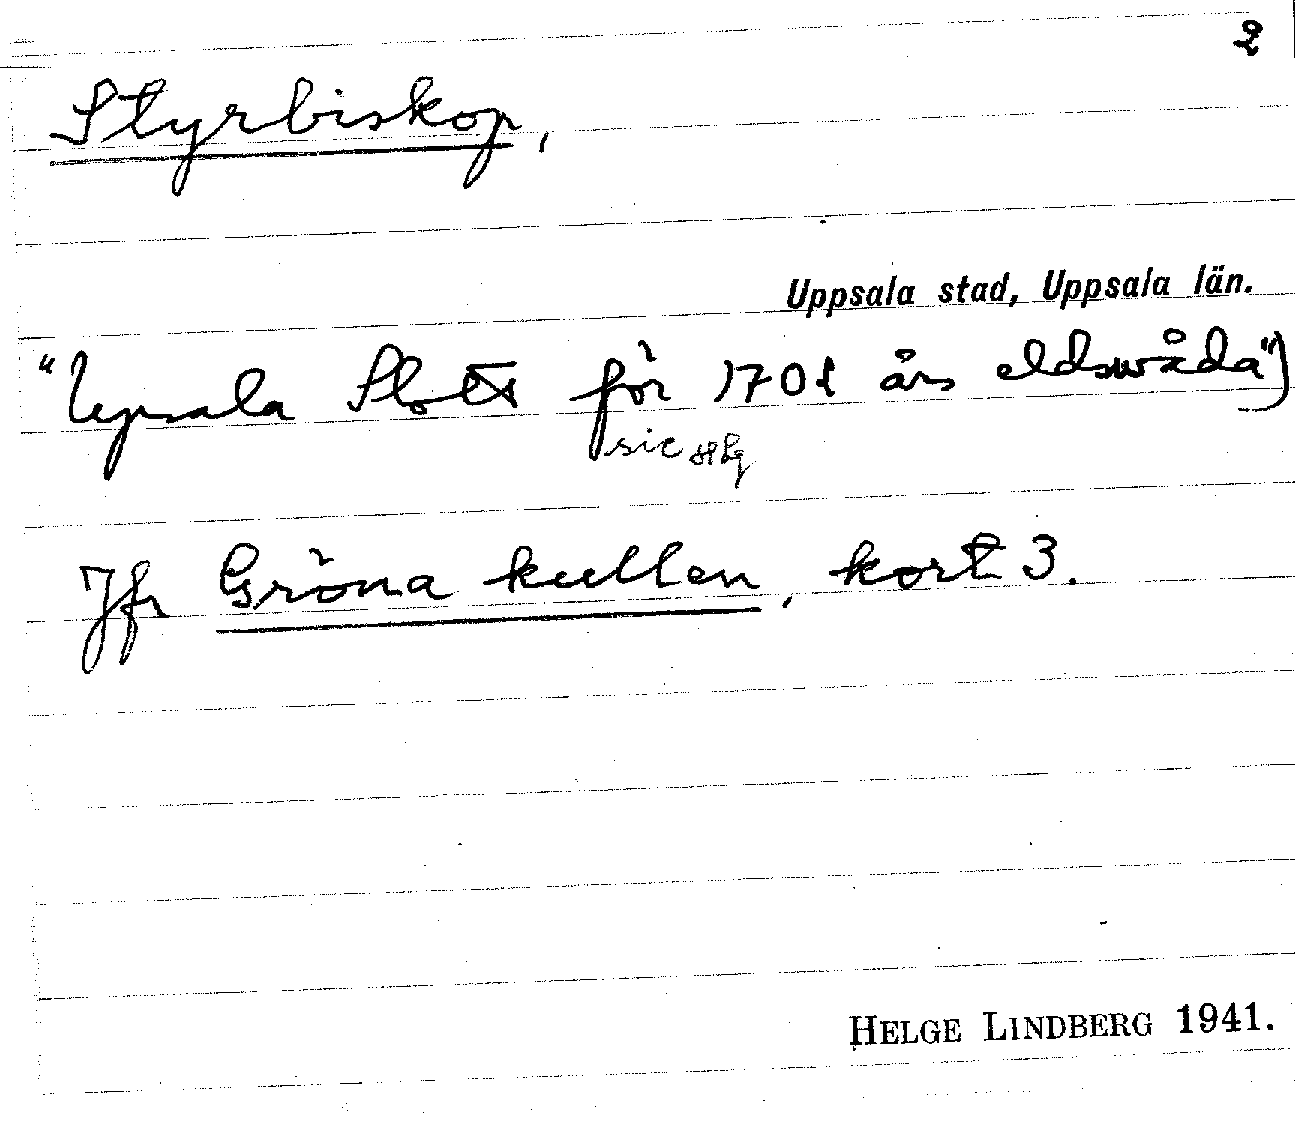 2
Styrbiskop,
Uppsala stad, Uppsala län.
"Upsala Slott för 1701 års eldswåda")
sic HLg
Jfr Gröna kullen, kort 3.
HELGE LINDBERG 1941.